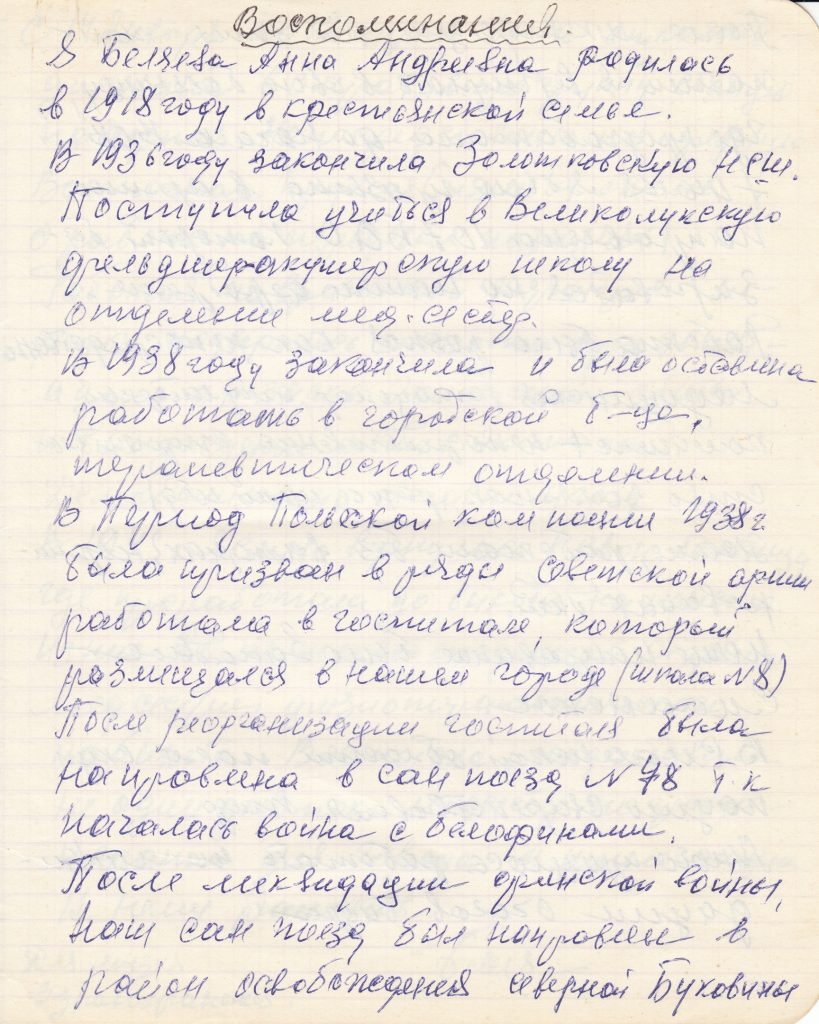 Воспоминания.
Я Беляева Анна Андреевна родилась
в 1918 году в крестьянской семье.
В 1936 году закончила Золотковскую НСШ.
Поступила учиться в Великолукскую
фельдшер-акушерскую школу на
отделение мед. сестер.
В 1938 году закончила и была оставлена
работать в городской б-це,
терапевтическом отделении.
В Период Польской компании 1938 г.
была призван в ряды советской армии
работала в госпитале, который
размещался в нашем городе (школа №8)
После реорганизации госпиталя была
направлена в сан поезд № 48 т.к
началась война с белофинами.
После ликвидации финской войны,
наш сан поезд был направлен в
район освобождения северной Буковины